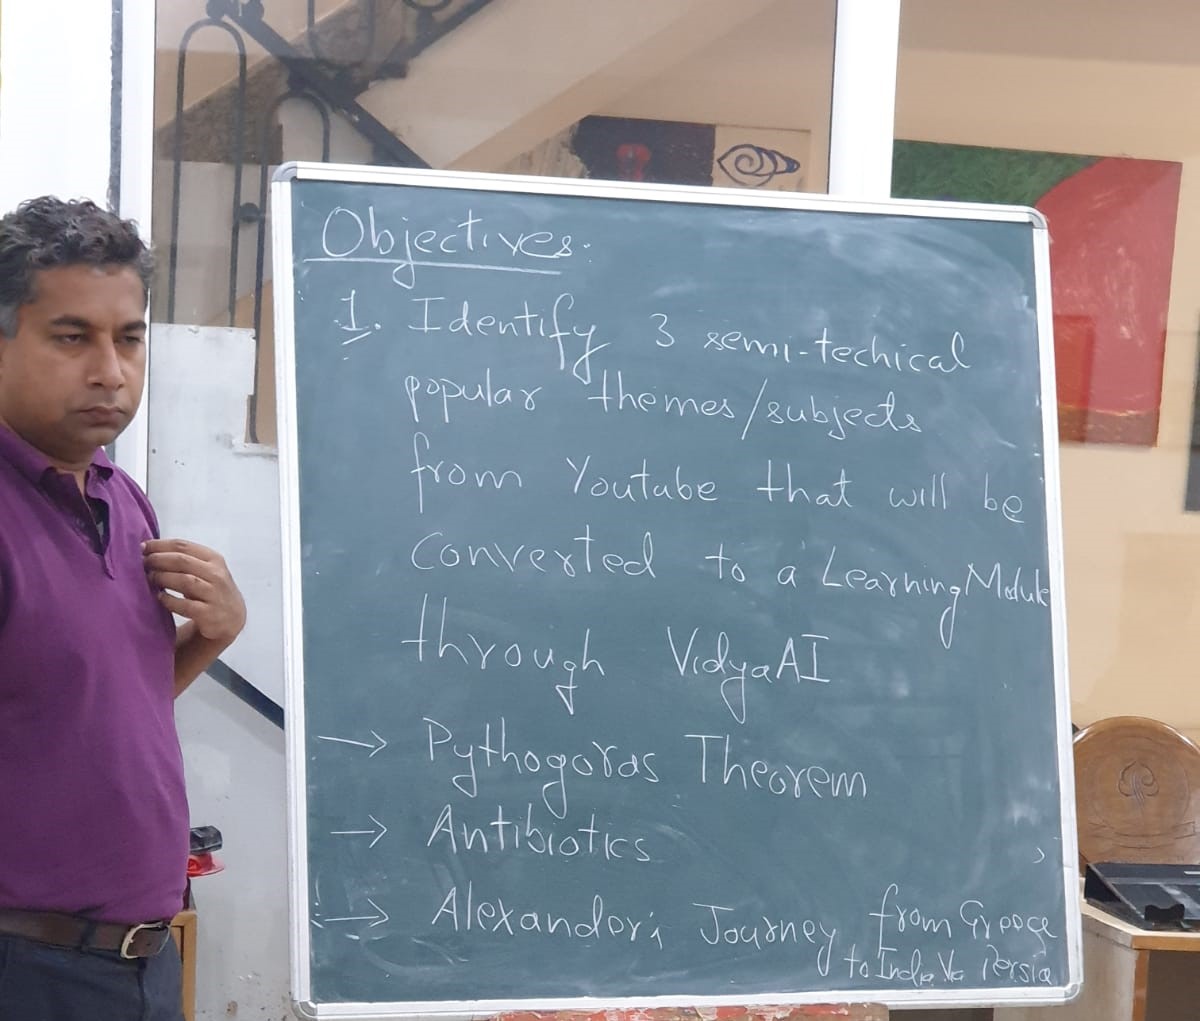 Objectives:
1. Identify 3 semi-techical
popular themes/subjects
from Youtube that will be
converted to a Learning Module
through VidyaAI
→ Pythogoras Theorem
→ Antibiotics
→ Alexander's Journey from Greece
to India Via Persia